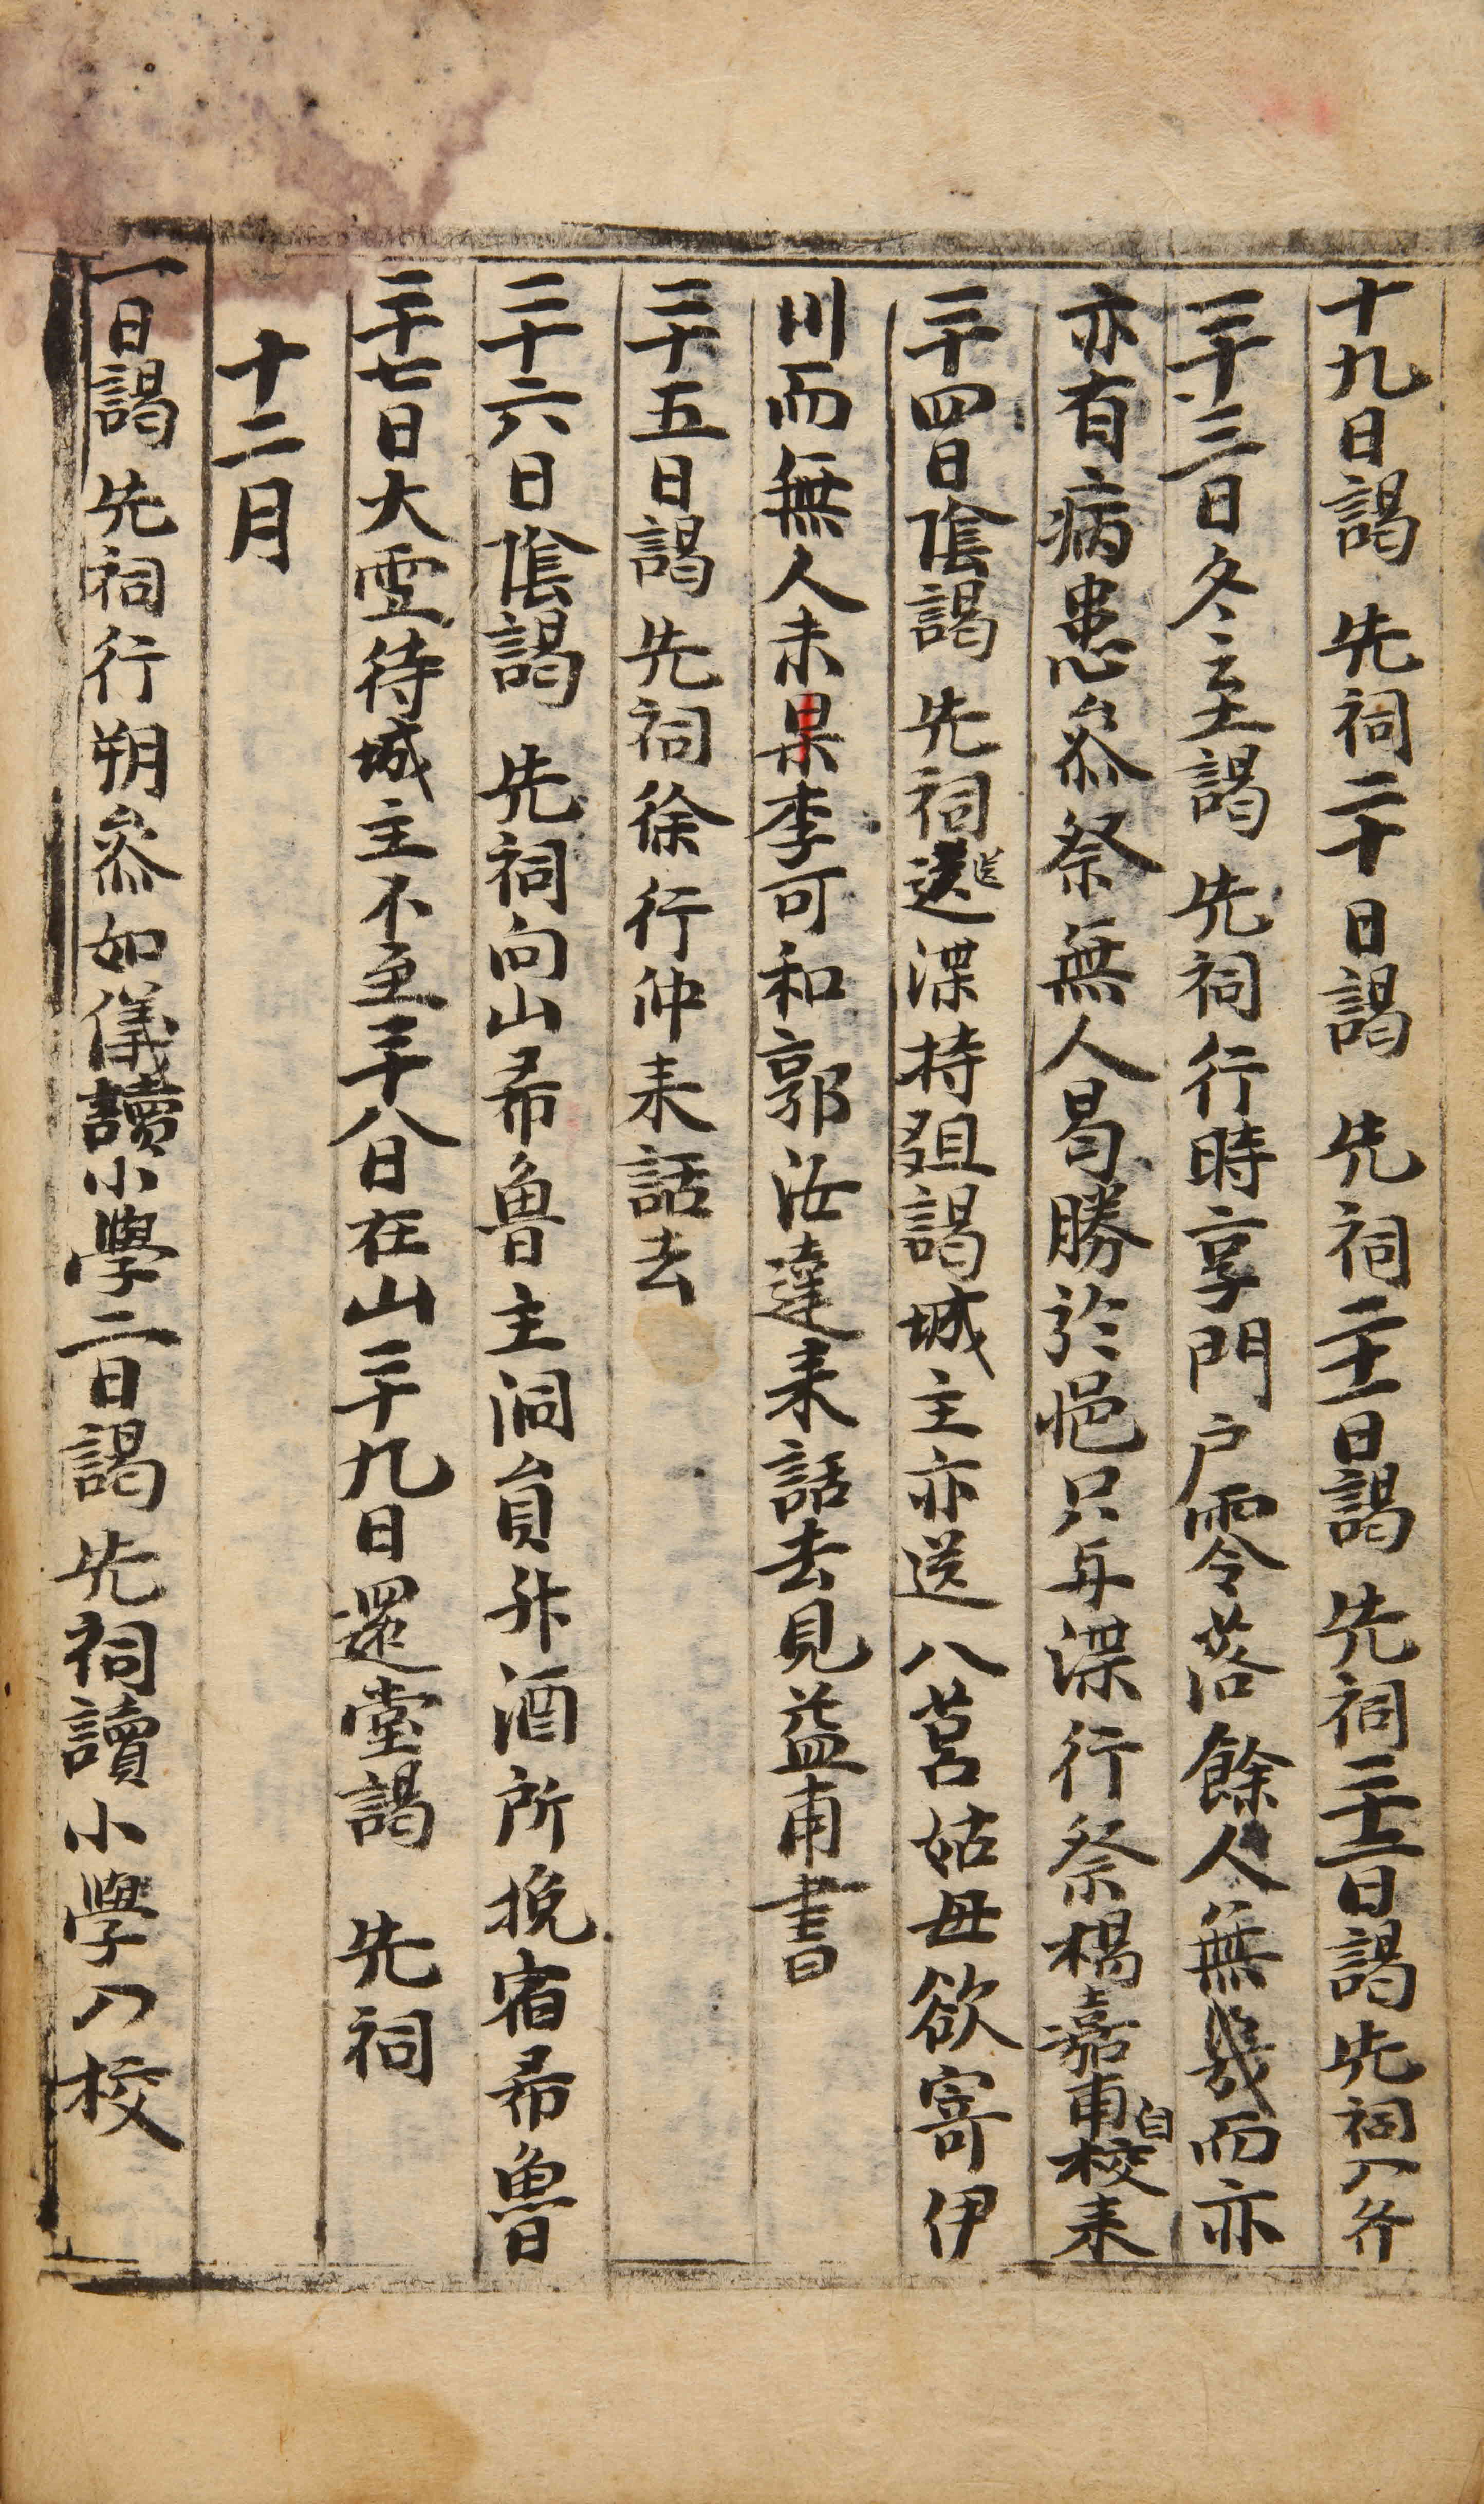 十九日謁 先祠二十日謁 先祠二十一日謁 先祠二十二日謁先祠入齐
二十三日冬至謁 先祠行時享門戶零落餘人無幾而亦
亦有病患叅祭無人曷勝於悒只与渫行祭楊嘉甫自校来
二十四日隂謁 先祠送渫持俎謁城主亦送八莒姑母欲寄伊
川而無人未果李可和郭汝達来話去見益甫書
二十五日謁 先祠徐行仲来話去
二十六日隂謁 先祠向山希魯主洞員舛酒所挽宿希魯
二十七日大雪待城主不至二十八日在山二十九日還堂謁 先祠
十二月
一日謁 先祠行朔叅如儀讀小學二日謁 先祠讀小學入校